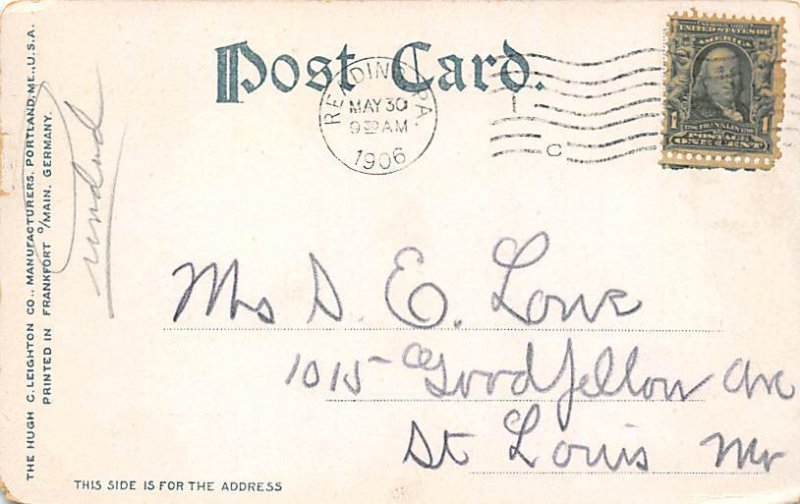 Post Card.
READING, PA.
MAY 30
9 30 AM
1906
C
UNITED STATES OF
AMERICA
1 FRANKLIN 1
POSTAGE
ONE CENT
THE HUGH C. LEIGHTON CO., MANUFACTURERS, PORTLAND, ME., U.S.A.
PRINTED IN FRANKFORT O/MAIN, GERMANY.
Mrs D. E. Lowe
1015 Goodfellow Ave
St Louis Mo
THIS SIDE IS FOR THE ADDRESS